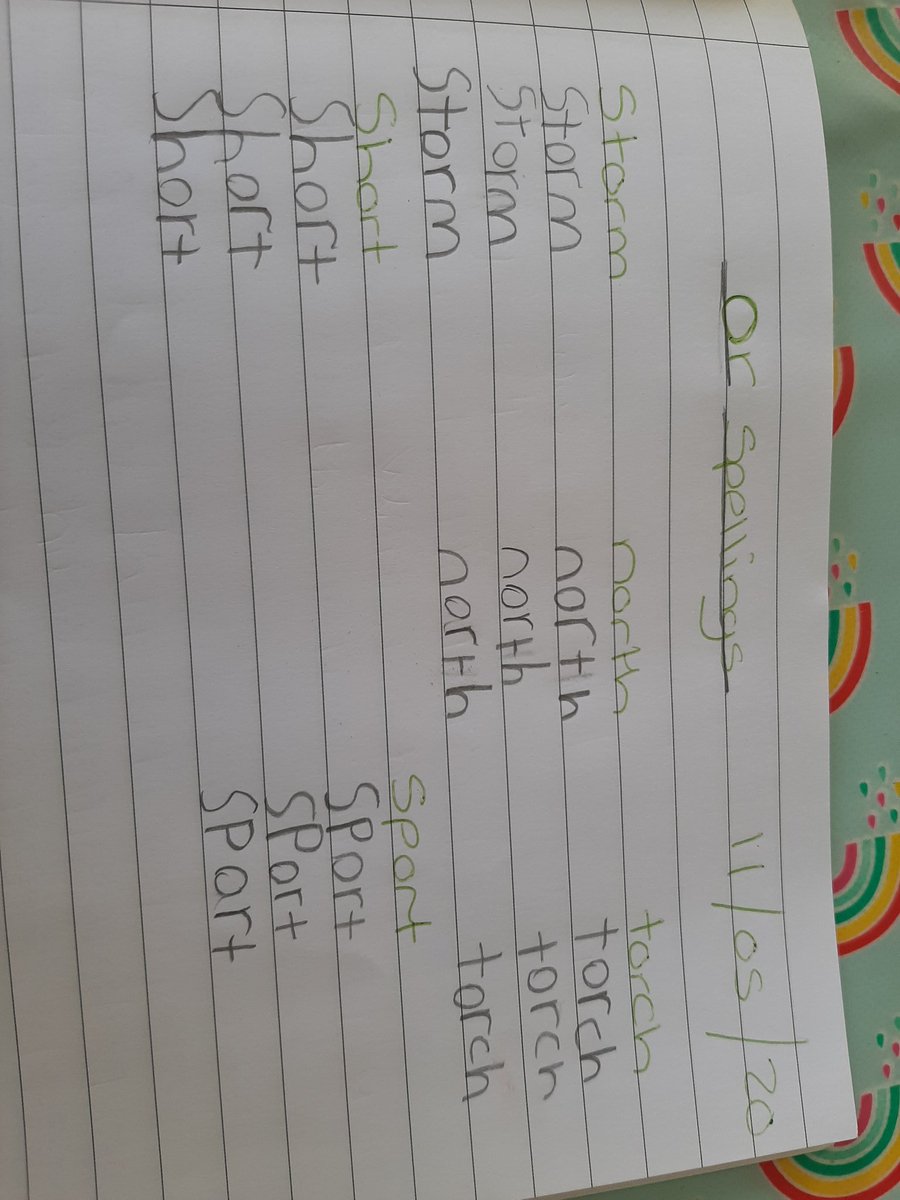 or spellings 11/05/20
Storm north torch
Storm north torch
Storm north torch
Storm north torch
Short Sport
Short Sport
Short Sport
Short Sport